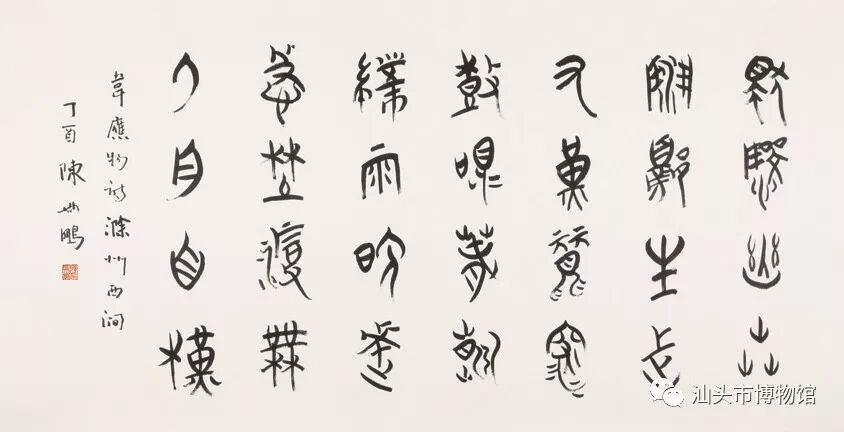 獨憐幽草
澗邊生上
有黃鸝深
樹鳴春潮
帶雨晚來
急野渡無
人舟自橫
韋應物詩滁州西澗
丁酉陳斯鵬
汕头市博物馆